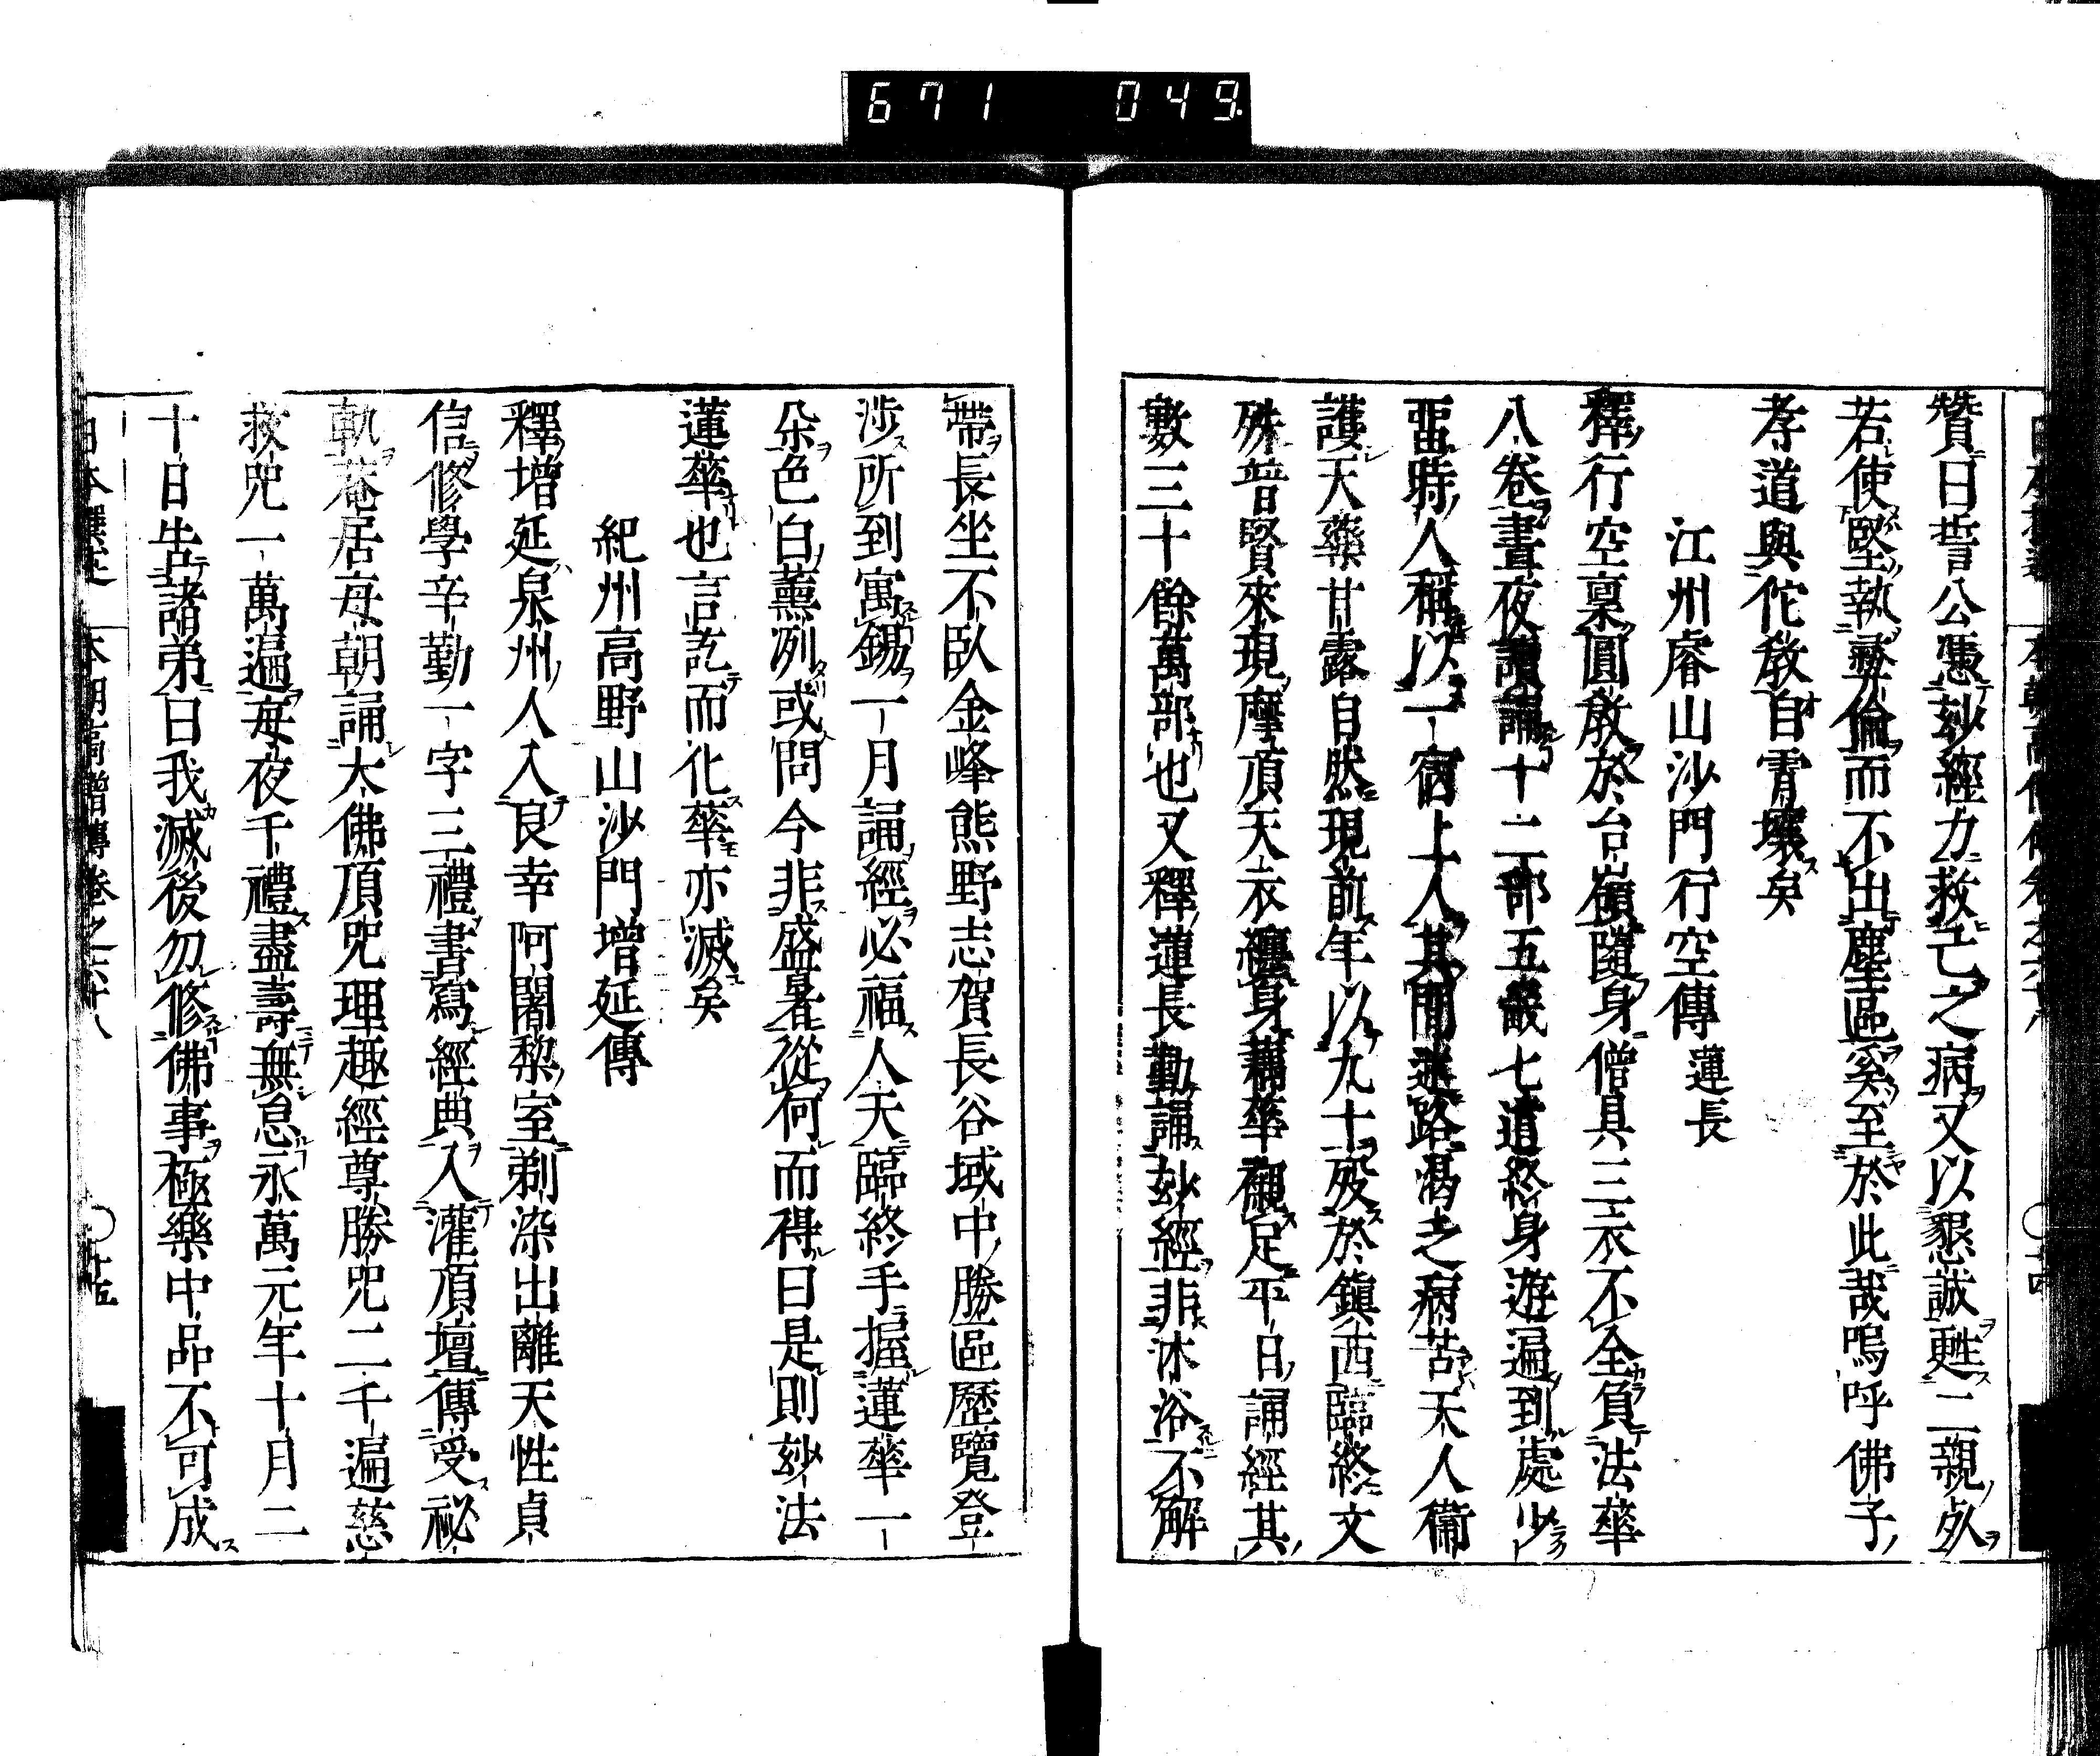 671 049
贊曰誓公憑玅經力救亡之病又以懇誠甦二親処
若使堅執彜倫而不出塵區奚至於此哉嗚呼佛子
孝道與佗教自霄壤矣
江州睿山沙門行空傳 蓮長
釋行空稟圓教於台嶺隨身僧具三衣不全負法華
八卷晝夜讀誦十二部五畿七道終身遊遍到處少
畱時人稱以一宿上人其間迷路渴乏病苦天人衞
護天藥甘露自然現前年以九十歿於鎭西臨終文
殊普賢來現摩頂天衣纏身蓮華襯足平日誦經其
數三十餘萬部也又釋蓮長勤誦玅經非沐浴不解
帶長坐不臥金峰熊野志賀長谷域中勝區歷覽登
涉所到寓錫一月誦經必福人天臨終手握蓮華一
朵色白薰冽或問今非盛暑從何而得曰是則玅法
蓮華也言訖而化華亦滅矣
紀州高野山沙門增延傳
釋增延泉州人入良幸阿闍黎室剃染出離天性貞
信修學辛勤一字三禮書寫經典入灌頂壇傳受祕
軌菴居每朝誦大佛頂咒理趣經尊勝咒二千遍慈
救咒一萬遍每夜千禮盡壽無怠永萬元年十月二
十日告諸弟曰我滅後勿修佛事極樂中品不可成
本朝高僧傳卷之六十八 〇十五